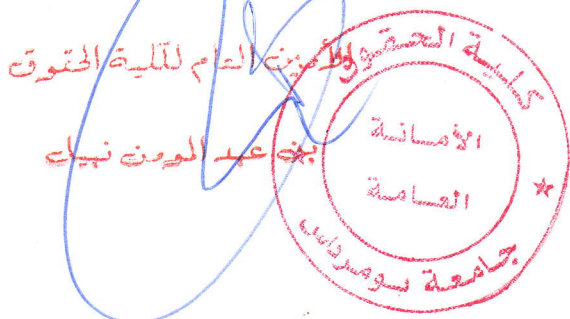 الأمين العام لكلية الحقوق
بن عبد المومن نبيل
كلية الحقوق
الأمانة
العامة
جامعة بومرداس